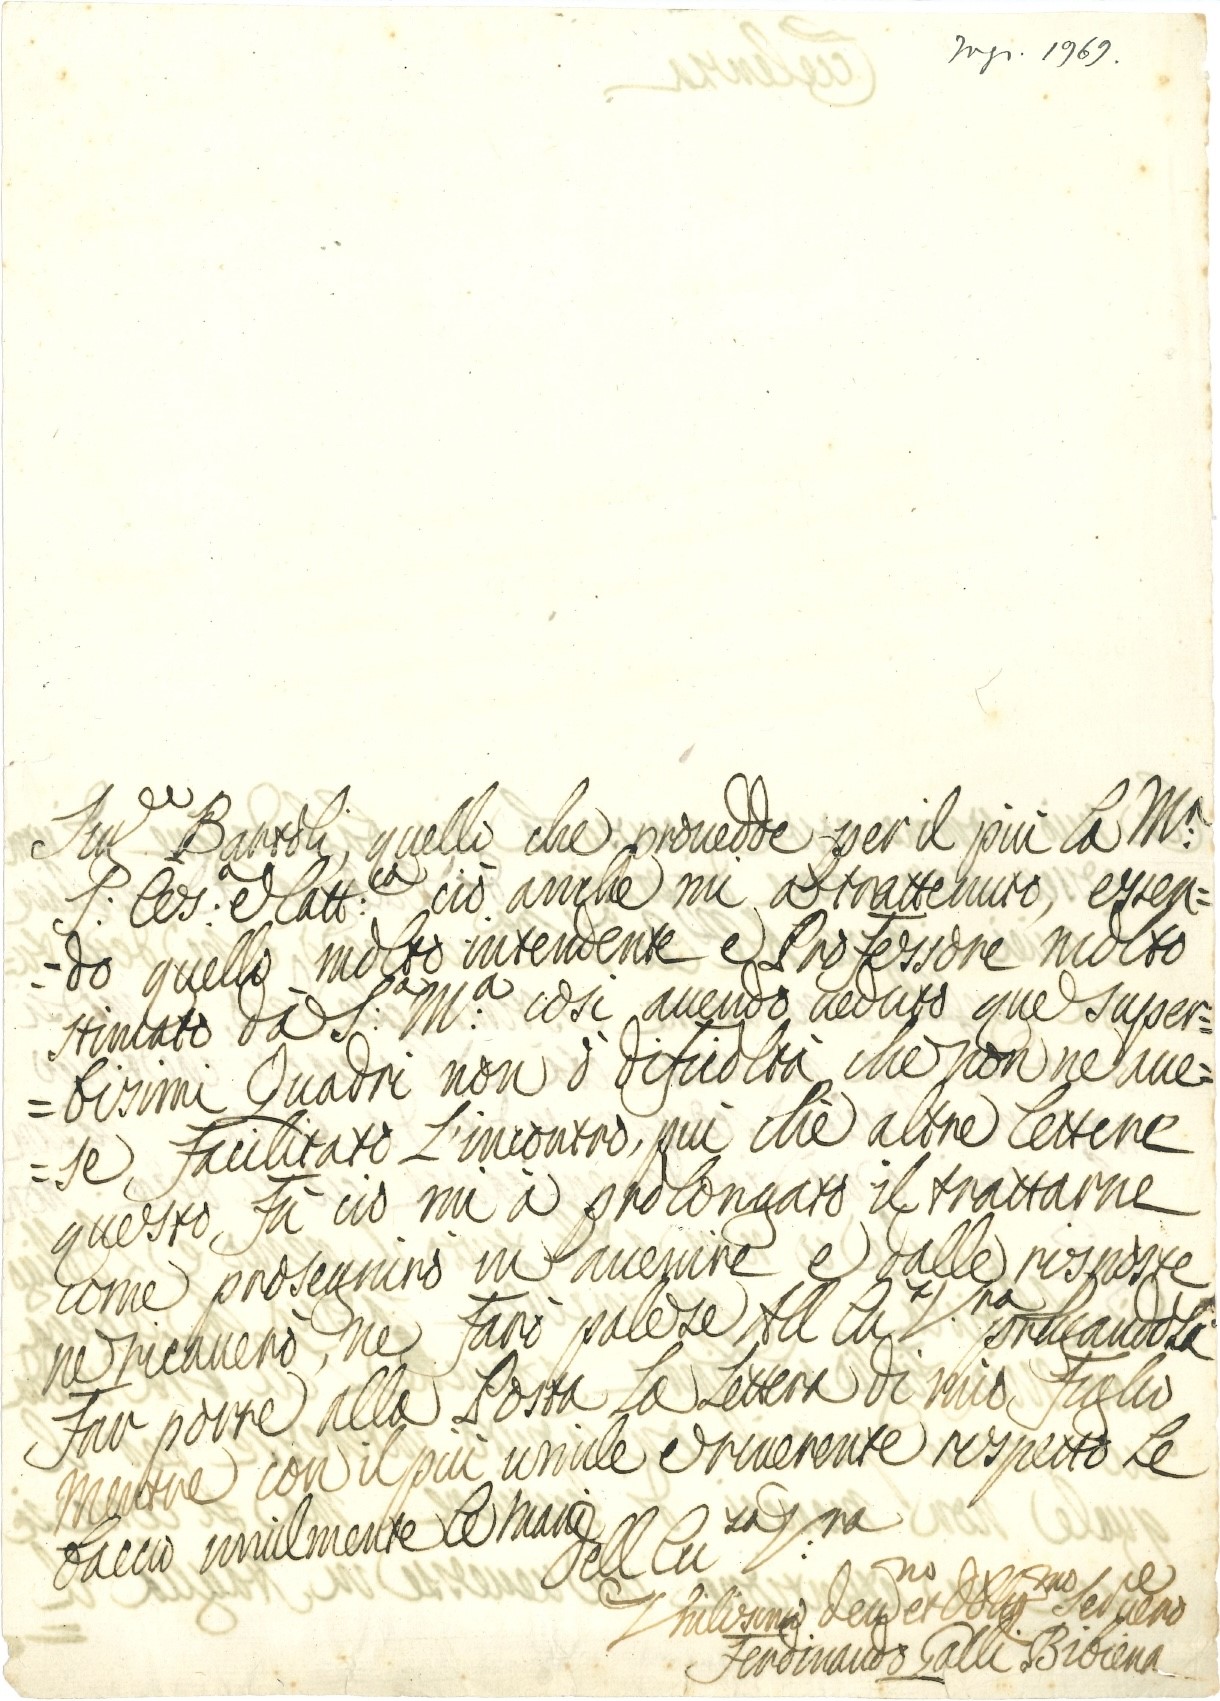 1969.
Bartoli, quello che provedde per il più la M.
S: Ces.a e Catt:ca ciò anche mi à trattenuto, essen=
=do quello molto intendente e Professore molto
stimato da S.a M.a cosi avendo veduto que super=
=bisimi Quadri non ò dificoltà che non ne ave=
=se facilitato L'incontro, più che altre lettere
questo fù ciò mi à prolongato il trattarne
come proseguirò in avenire e dalle risposte
ne ricaverò, ne farò palese All Cu.za V.ra pregandola
far porre alla Posta La Lettera di mio Figlio
mentre con il più umile e riverente rispetto Le
baccio umilmente le mani
dell Cu za V:ra
Vmilissimo dev.no et obbg.mo Ser.e vero
Ferdinando Galli Bibiena